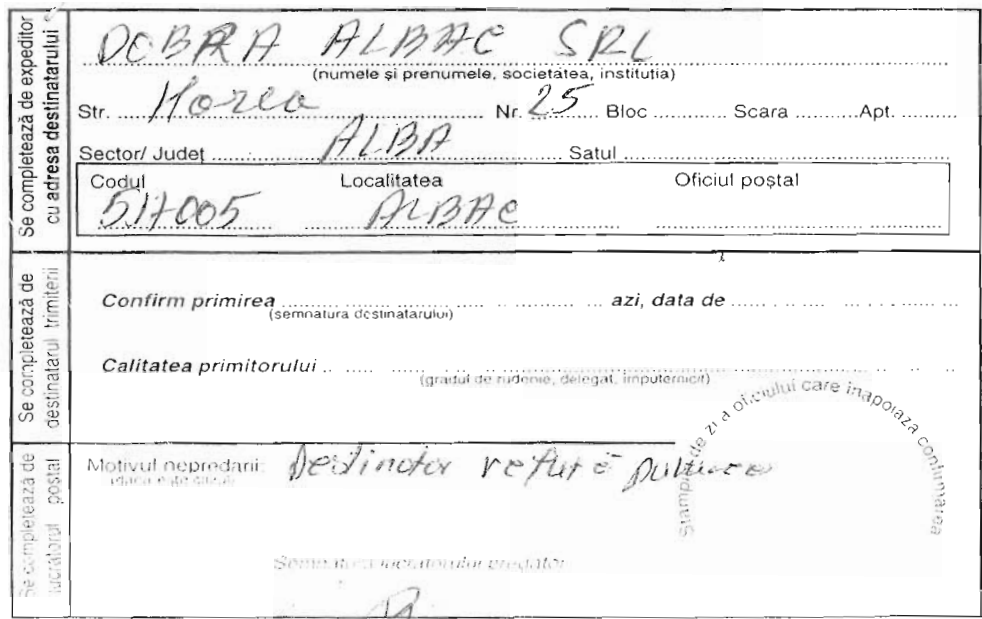 Se completează de expeditor
cu adresa destinatarului
DOBRA ALBAC SRL
(numele și prenumele, societatea, instituția)
Str. Horea Nr. 25 Bloc Scara Apt.
Sector/ Județ ALBA Satul
Codul Localitatea Oficiul poștal
517005 ALBAC
Se completează de
destinatarul trimiterii
Confirm primirea azi, data de
(semnatura destinatarului)
Calitatea primitorului
(gradul de rudenie, delegat, împuternicit)
Ștampila de zi a oficiului care înapoiază confirmarea
Se completează de
lucrătorul postal
Motivul nepredarii: Destinatar refuză
(daca este cazul)
Semnatura lucratorului predator